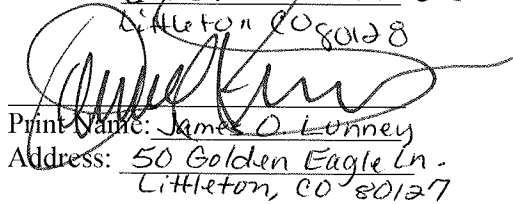 Littleton CO 80128
Print Name: James O Lunney
Address: 50 Golden Eagle Ln.
Littleton, CO 80127